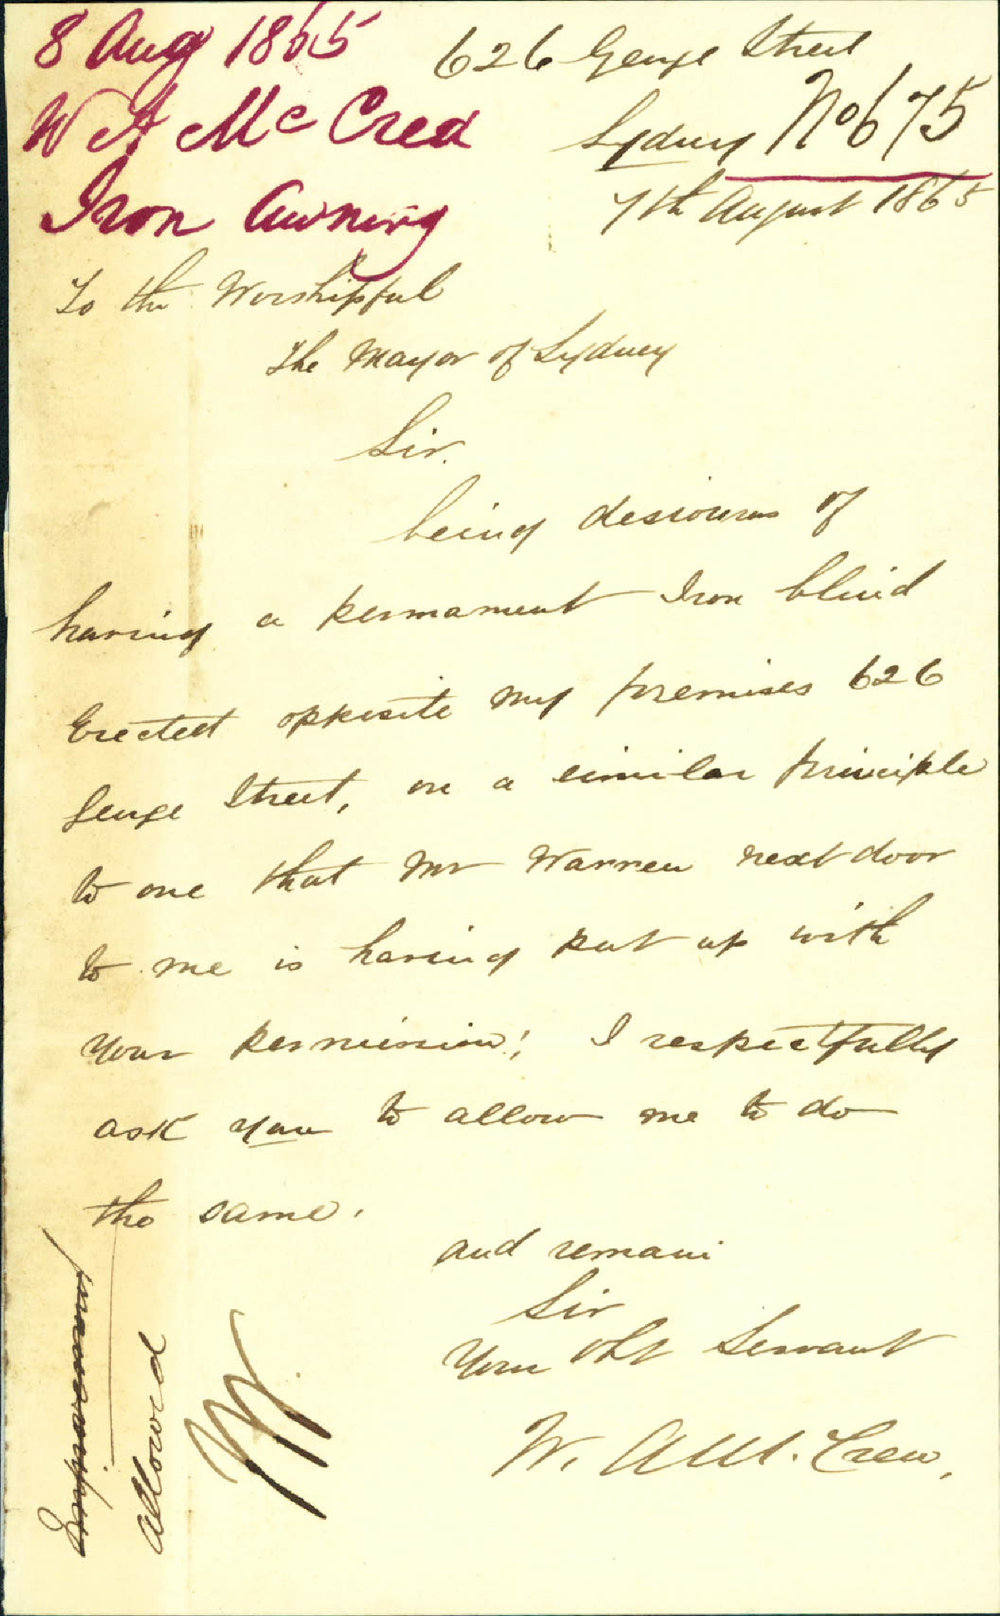 8 Aug 1865
W A Mc Crea
Iron Awning
626 George Street
Sydney No 675
7th August 1865
To the Worshipful
The Mayor of Sydney
Sir.
being desirous of
having a permanent Iron blind
Erected opposite my premises 626
George Street, on a similar principle
to one that Mr Warren next door
to me is having put up with
your permission; I respectfully
ask you to allow me to do
the same.
and remain
Sir
Your Obt Servant
W. A M. Crea,
allowed